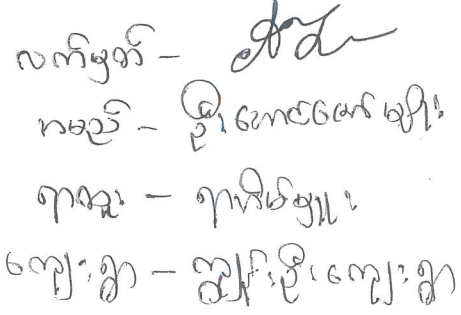 လက်မှတ် -
အမည် - ဦးအောင်ဇော်မျိုး
ရာထူး - ရာအိမ်မှူး
ကျေးရွာ - ကျွန်းဦးကျေးရွာ